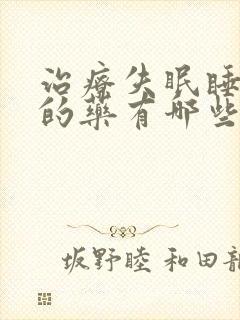 治療失眠睡
的藥有哪些
坂野睦 和田龍